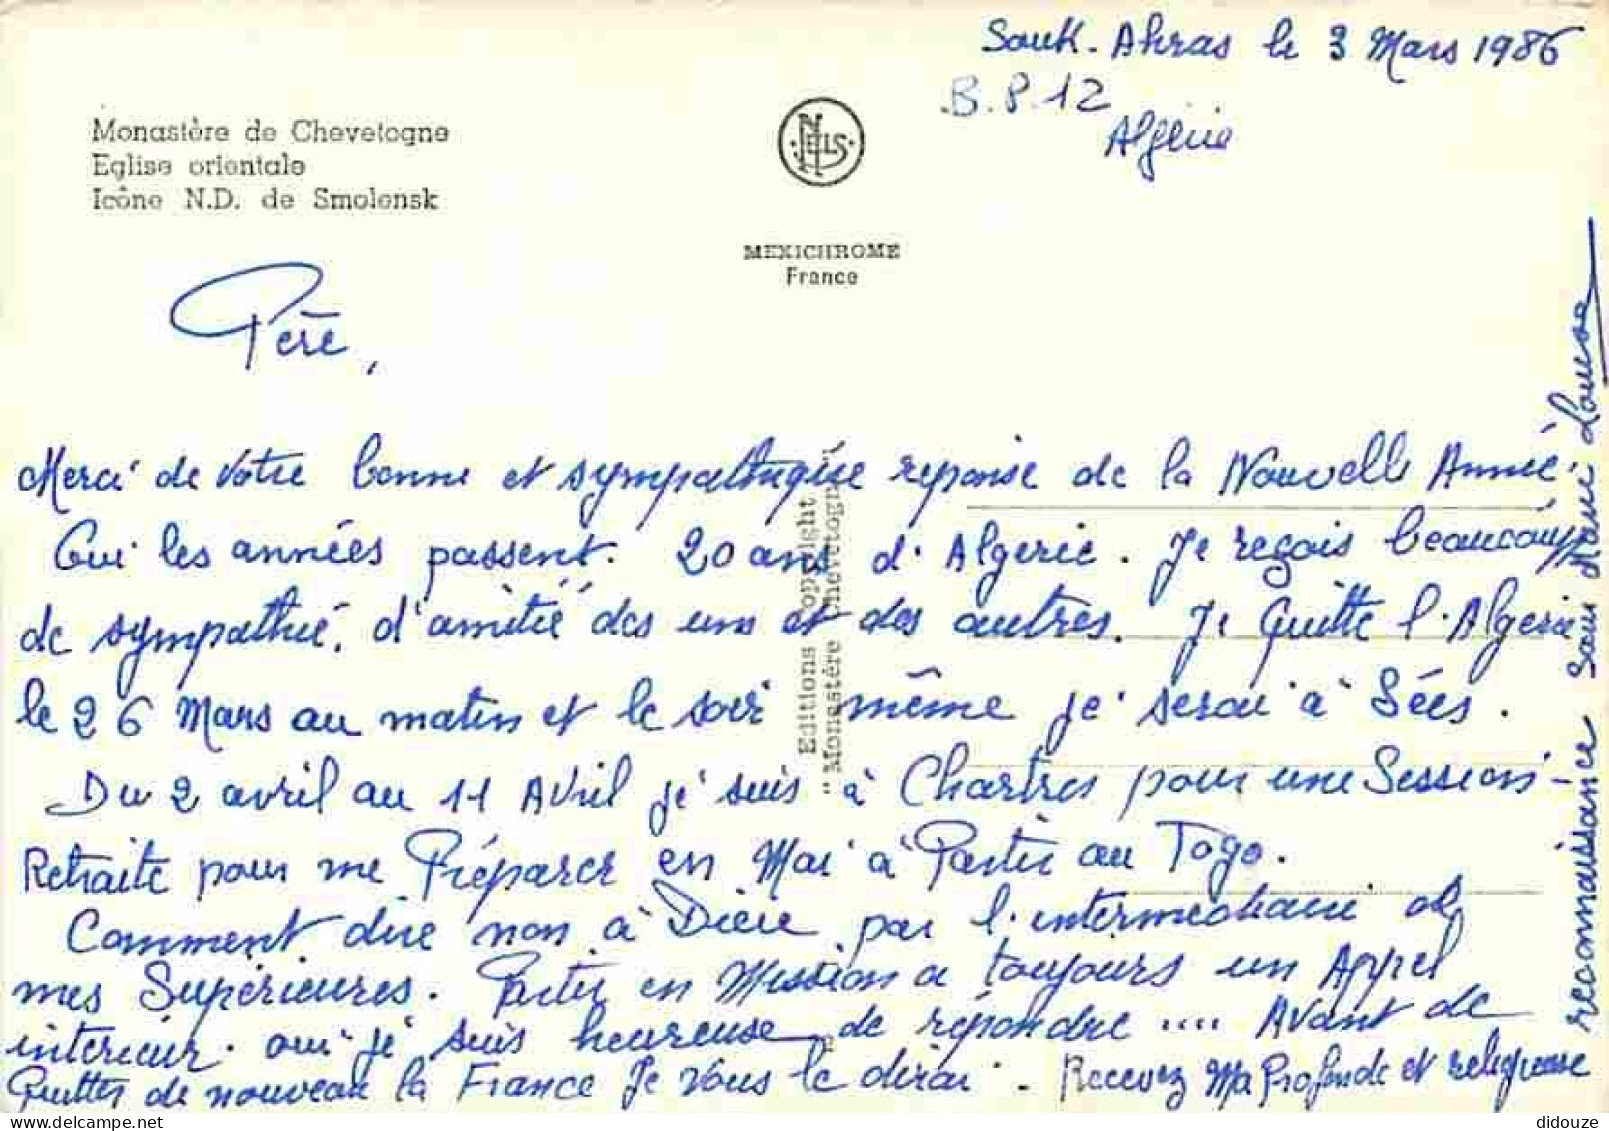 Souk-Ahras le 3 Mars 1986
B.P.12
Algérie
Monastère de Chevetogne
Eglise orientale
Icône N.D. de Smolensk
NELS
MEXICHROME
France
Père,
Merci de votre bonne et sympathique réponse de la Nouvelle Année.
Oui les années passent. 20 ans d'Algérie. Je reçois beaucoup
de sympathie, d'amitié des uns et des autres. Je Quitte l'Algérie
le 26 Mars au matin et le soir même je serai à Sées.
Du 2 avril au 11 Avril je suis à Chartres pour une Session
Retraite pour me Préparer en Mai à Partir au Togo.
Comment dire non à Dieu par l'intermédiaire de
mes Supérieures. Partir en Mission a toujours un Appel
intérieur oui je suis heureuse de répondre .... Avant de
Quitter de nouveau la France Je vous le dirai. Recevez Ma Profonde et religieuse
reconnaissance Sœur Marie Louise
Editions Copyright
"Monastère Chevetogne"
didouze